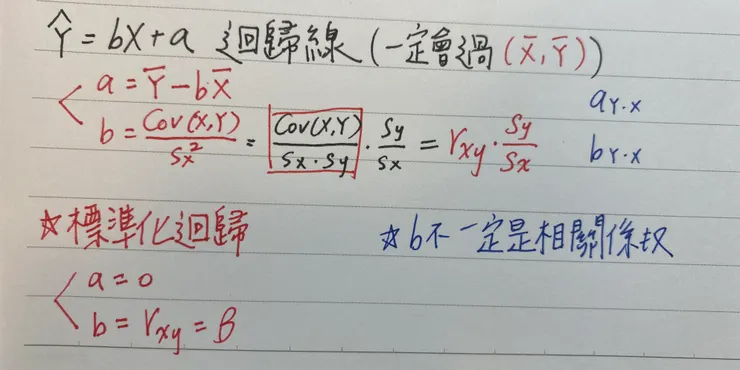 Ŷ = bX + a 迴歸線 (一定會過 (X̄, Ȳ))
a = Ȳ - bX̄
b = Cov(X,Y)/Sx² = Cov(X,Y)/(Sx·Sy) · Sy/Sx = rxy · Sy/Sx
aY·X
bY·X
☆標準化迴歸
☆b不一定是相關係数
a = 0
b = rxy = β